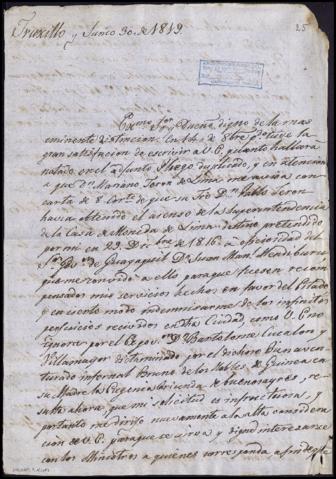 Truxillo y Junio 30. de 1819.
25
Exmo. Sor. y Dueño digno de la mas
eminente distincion. En 14 de 8bre. pdo. tuve la
gran satisfaccion de escrivir a V.E. quanto hallará
notado en el adjunto Pliego duplicado, y en atencion
a que Dn. Mariano Teron de Lima me avisa con
carta de 8 corrte. de que su Tio Dn. Pablo Teron
havia obtenido el acenso de la Superintendencia
de la Casa de Moneda de Lima, destino pretendido
por mi en 29 Dicbre. de 1816. a
de Guayaquil Dn. Juan Manl. Mendiburu
que me convidó a ello para que fuesen recom
pensados mis servicios hechos en favor del Estado
y en cierto modo indemnisarme de los infinitos
perjuicios recividos en dha. Ciudad, como V.E. no
ignora por el Dn. Bartolome Cucalon y
Villamayor determinado por el dichoso Bunaven
turado infernal Bruno de los Nobles de Guinea en
su Madre la Eugenia
sulta ahora que mi solicitud es infructuosa, y
portanto me dirijo nuevamente a la alta considera
cion de V.E. para que se sirva y digne interesarse
con los Ministros a quienes corresponda a fin de qe.